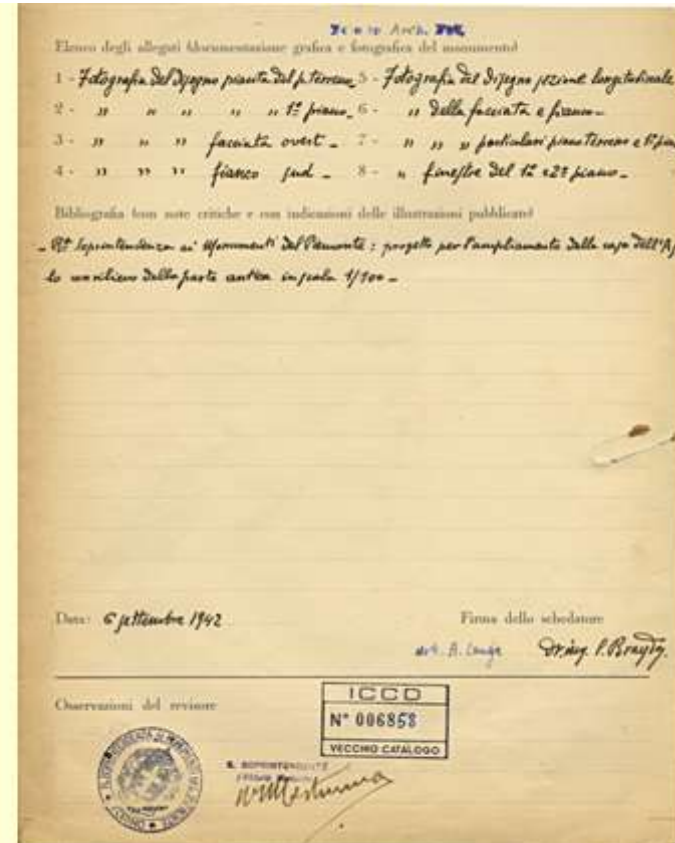 Arch. Fot.
Elenco degli allegati (documentazione grafica e fotografica del monumento)
1 - Fotografia del Disegno pianta del p. terreno 5 - Fotografia del Disegno sezione longitudinale
2 - " " " " " 1º piano 6 - " della facciata e fianco
3 - " " " facciata ovest 7 - " " " particolari piano terreno e 1º
4 - " " " fianco sud 8 - " finestre del 1º e 2º piano
Bibliografia (con note critiche e con indicazioni delle illustrazioni pubblicate)
Soprintendenza ai Monumenti del Piemonte: progetto per l'ampliamento della casa
della parte antica in scala 1/100
Data: 6 settembre 1942 Firma dello schedatore
A. Dr. ing. P.
Osservazioni del revisore
ICCD
N° 006858
VECCHIO CATALOGO
IL SOPRINTENDENTE